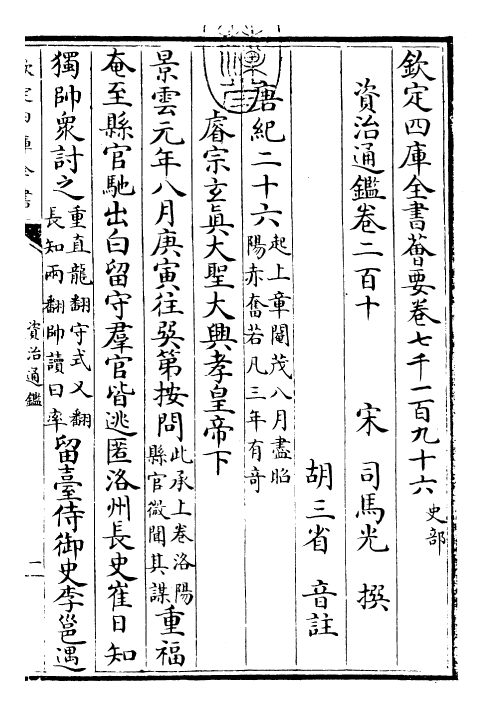 欽定四庫全書薈要卷七千一百九十六 史部
資治通鑑卷二百十
宋 司馬光 撰
胡三省 音註
唐紀二十六 起上章閹茂八月盡昭
陽赤奮若凡三年有奇
睿宗玄真大聖大興孝皇帝下
景雲元年八月庚寅往巽第按問 此承上卷洛陽
縣官微聞其謀 重福
奄至縣官馳出白留守羣官皆逃匿洛州長史崔日知
獨帥衆討之 重直龍翻守式又翻
長知兩翻帥讀曰率 留臺侍御史李邕遇
資治通鑑